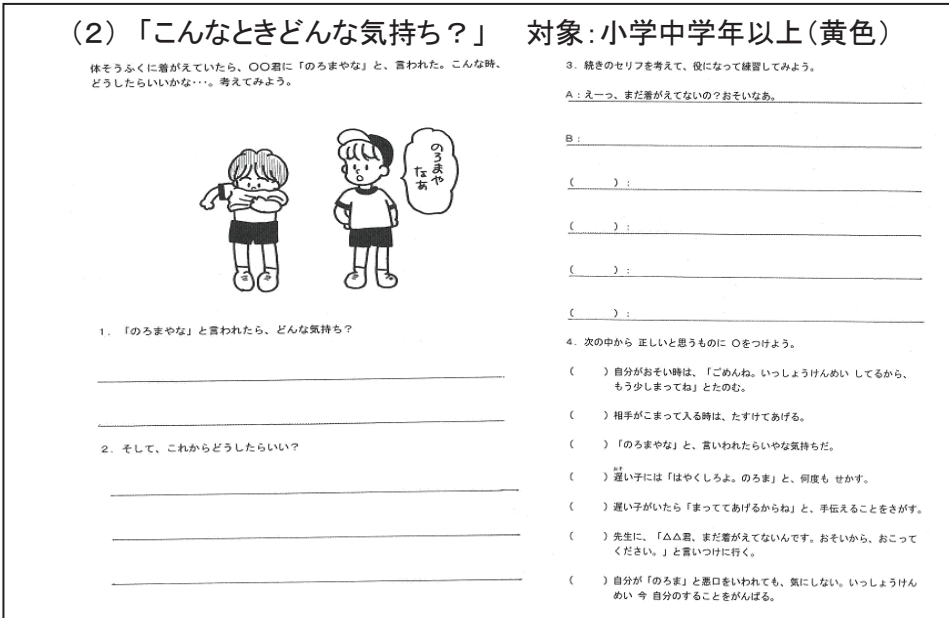 (2)「こんなときどんな気持ち？」　対象：小学中学年以上（黄色）
体そうふくに着がえていたら、〇〇君に「のろまやな」と、言われた。こんな時、
どうしたらいいかな・・・。考えてみよう。
のろまや
なあ
1．「のろまやな」と言われたら、どんな気持ち？
2．そして、これからどうしたらいい？
3．続きのセリフを考えて、役になって練習してみよう。
A：えーっ、まだ着がえてないの？おそいなあ。
B：
（　　）：
（　　）：
（　　）：
（　　）：
4．次の中から 正しいと思うものに 〇をつけよう。
（　　）自分がおそい時は、「ごめんね。いっしょうけんめい してるから、
もう少しまってね」とたのむ。
（　　）相手がこまって入る時は、たすけてあげる。
（　　）「のろまやな」と、言いわれたらいやな気持ちだ。
おそ
（　　）遅い子には「はやくしろよ。のろま」と、何度も せかす。
（　　）遅い子がいたら「まっててあげるからね」と、手伝えることをさがす。
（　　）先生に、「△△君、まだ着がえてないんです。おそいから、おこって
ください。」と言いつけに行く。
（　　）自分が「のろま」と悪口をいわれても、気にしない。いっしょうけん
めい 今 自分のすることをがんばる。